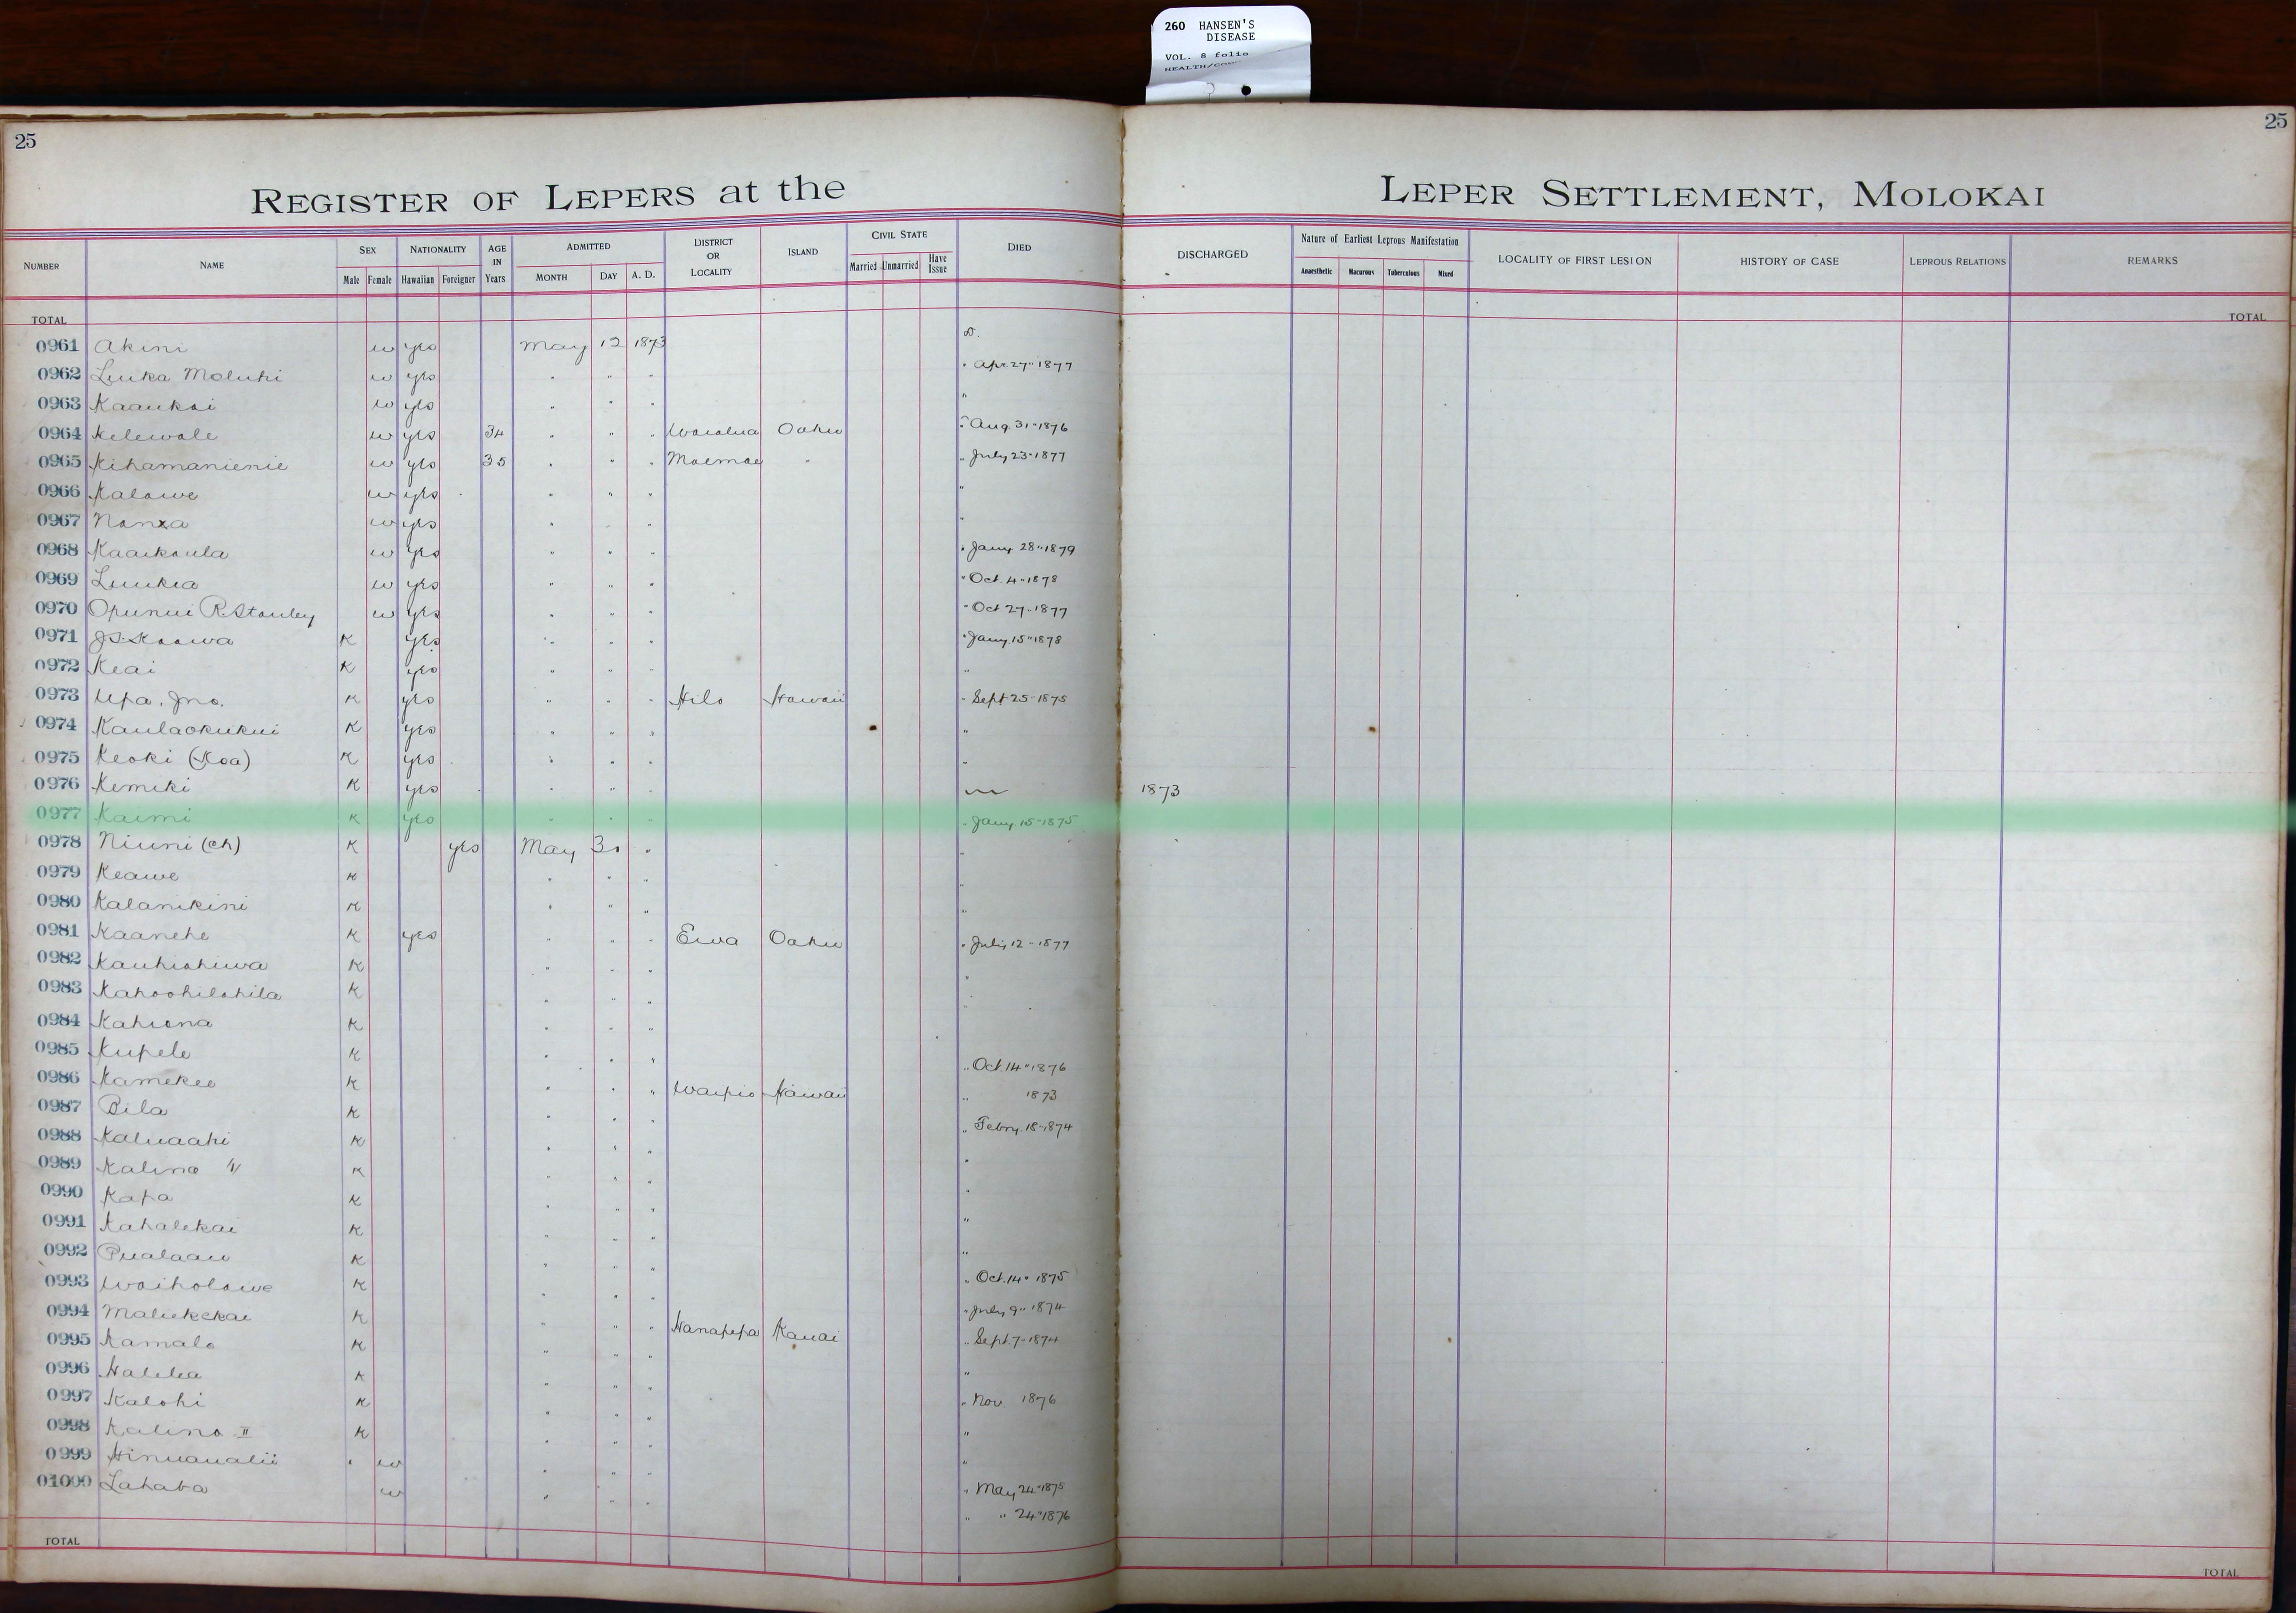 260 HANSEN'S
DISEASE
VOL. 8 folio
25
25
REGISTER OF LEPERS at the LEPER SETTLEMENT, MOLOKAI
NUMBER NAME SEX Male Female NATIONALITY Hawaiian Foreigner AGE IN Years ADMITTED MONTH DAY A. D. DISTRICT OR LOCALITY ISLAND CIVIL STATE Married Unmarried Have Issue DIED DISCHARGED Nature of Earliest Leprous Manifestation Anaesthetic Macurous Tuberculous Mixed LOCALITY OF FIRST LESION HISTORY OF CASE LEPROUS RELATIONS REMARKS
TOTAL TOTAL
0961 Akini w yes May 12 1873 D.
0962 Luika Moluhi w yes " " " " Apr. 27" 1877
0963 Kaaukai w yes " " " "
0964 Kelewale w yes 34 " " " Waialua Oahu " Aug. 31" 1876
0965 Kihamanienie w yes 35 " " " Moemoe " " July 23" 1877
0966 Kalawe w yes " " " "
0967 w yes " " " "
0968 Kaaikaula w yes " " " " Jany. 28" 1879
0969 Luukia w yes " " " " Oct. 4" 1878
0970 Opunui R. Stanley w yes " " " " Oct 27" 1877
0971 K yes " " " " Jany. 15" 1878
0972 Keai K yes " " " "
0973 Upa. Jno. K yes " " " Hilo Hawaii " Sept 25" 1875
0974 Kaulaokukui K yes " " " "
0975 Keoki (Koa) K yes " " " "
0976 Kemiki K yes " " " 1873
0977 Kaimi K yes " " " " Jany. 15" 1875
0978 Niuni (Ch) K yes May 30 " "
0979 Keawe K " " " "
0980 Kalanikini K " " " "
0981 Kaanehe K yes " " " Ewa Oahu " July 12" 1877
0982 Kauhiahiwa K " " " "
0983 Kahoohilahila K " " " "
0984 Kahiona K " " "
0985 Kupele K " " " " Oct. 14" 1876
0986 Kamekeo K " " " Waipio Hawaii " 1873
0987 Bila K " " " " Febry. 18" 1874
0988 Kaluaahi K " " " "
0989 Kalino K " " " "
0990 Kapa K " " " "
0991 Kahalekai K " " " "
0992 Pualaau K " " " " Oct. 14" 1875
0993 Waiholowe K " " " " July 9" 1874
0994 Maliekekai K " " " Hanapepa Kauai " Sept. 7" 1874
0995 Kamalo K " " " "
0996 Halelea K " " " " Nov. 1876
0997 Kalohi K " " " "
0998 Kalino II K " " " "
0999 Hinuaualii w " " " " May 24" 1875
01000 Lahaba w " " " " " 24" 1876
TOTAL TOTAL